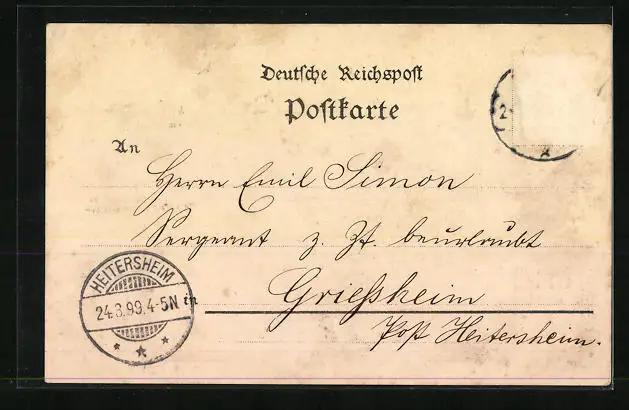 Deutsche Reichspost
Postkarte
An
Herrn Emil Simon
Sergeant z. Zt. beurlaubt
in Griessheim
Post Heitersheim.
HEITERSHEIM
24.3.99.4-5N
2-